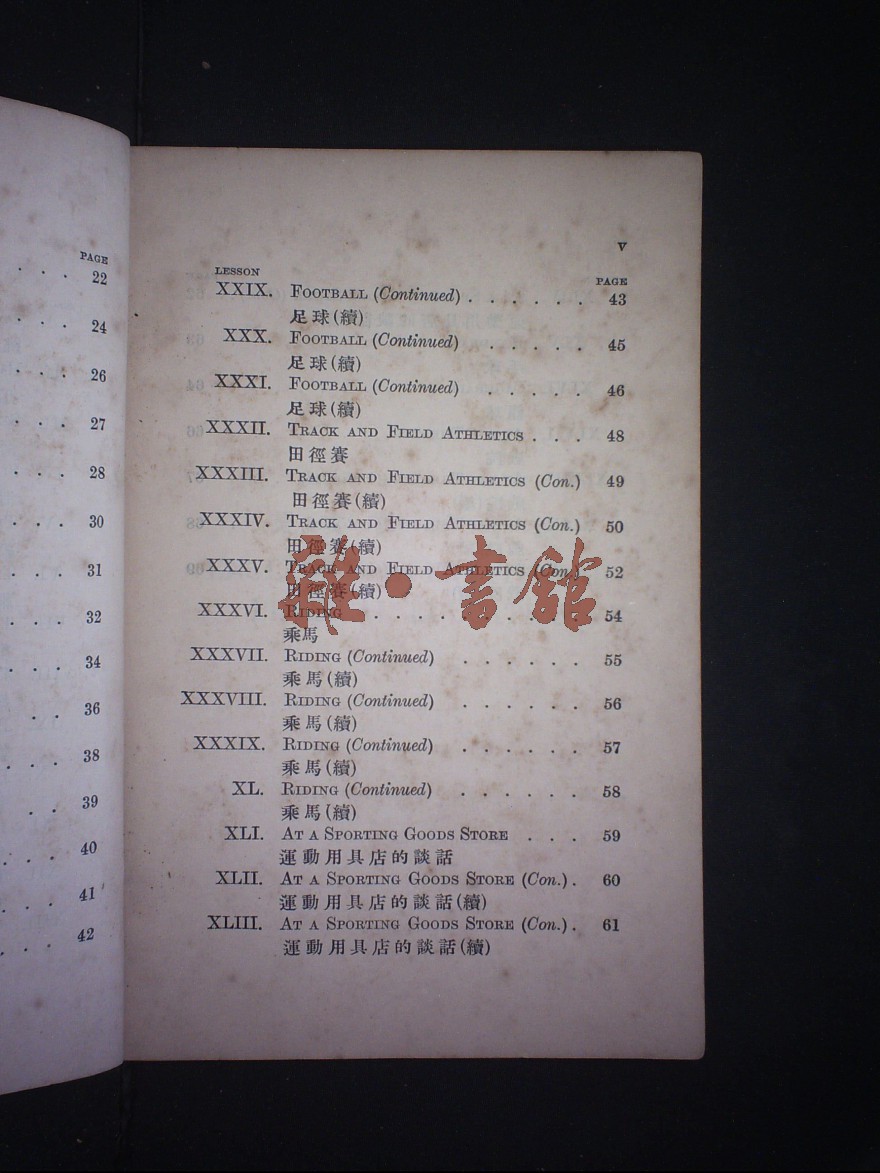 PAGE
22
24
26
27
28
30
31
32
34
36
38
39
40
41
42
V
LESSON PAGE
XXIX. FOOTBALL (Continued) . . . . . . 43
足球(續)
XXX. FOOTBALL (Continued) . . . . . 45
足球(續)
XXXI. FOOTBALL (Continued) . . . . . 46
足球(續)
XXXII. TRACK AND FIELD ATHLETICS . . . 48
田徑賽
XXXIII. TRACK AND FIELD ATHLETICS (Con.) 49
田徑賽(續)
XXXIV. TRACK AND FIELD ATHLETICS (Con.) 50
田徑賽(續)
XXXV. TRACK AND FIELD ATHLETICS (Con.) 52
田徑賽(續)
XXXVI. RIDING . . . . . . . . . 54
乘馬
XXXVII. RIDING (Continued) . . . . . . 55
乘馬(續)
XXXVIII. RIDING (Continued) . . . . . . 56
乘馬(續)
XXXIX. RIDING (Continued) . . . . . . 57
乘馬(續)
XL. RIDING (Continued) . . . . . . 58
乘馬(續)
XLI. AT A SPORTING GOODS STORE . . . 59
運動用具店的談話
XLII. AT A SPORTING GOODS STORE (Con.) . 60
運動用具店的談話(續)
XLIII. AT A SPORTING GOODS STORE (Con.) . 61
運動用具店的談話(續)
雜·書館